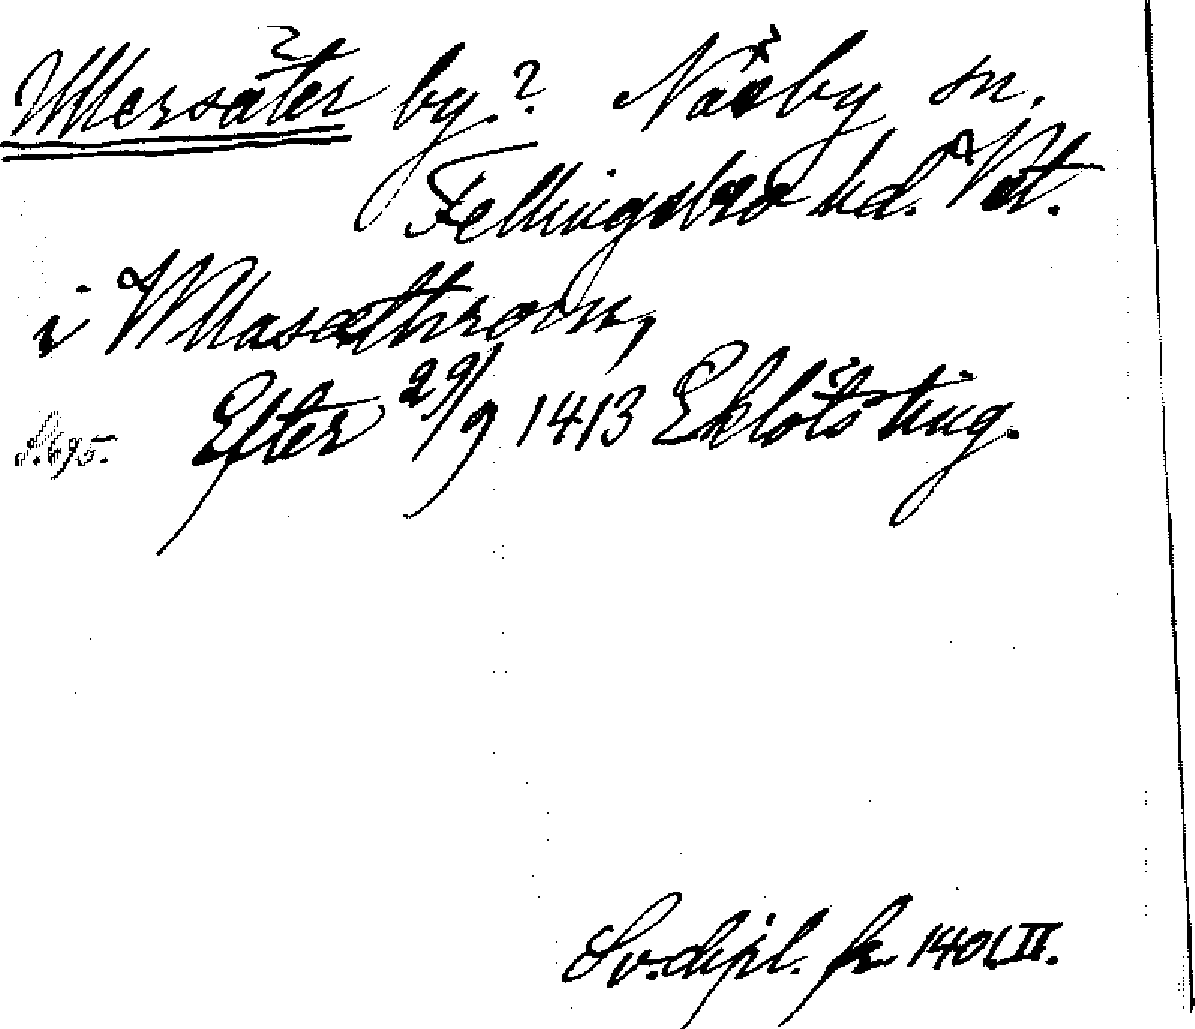 Ullersäter by.? Näsby sn.
Fellingsbro hd. Vst.
i Wllasæthrom,
Efter 29/9 1413 Eklöts ting.
S. 695.
Sv. dipl. fr 1401. II.